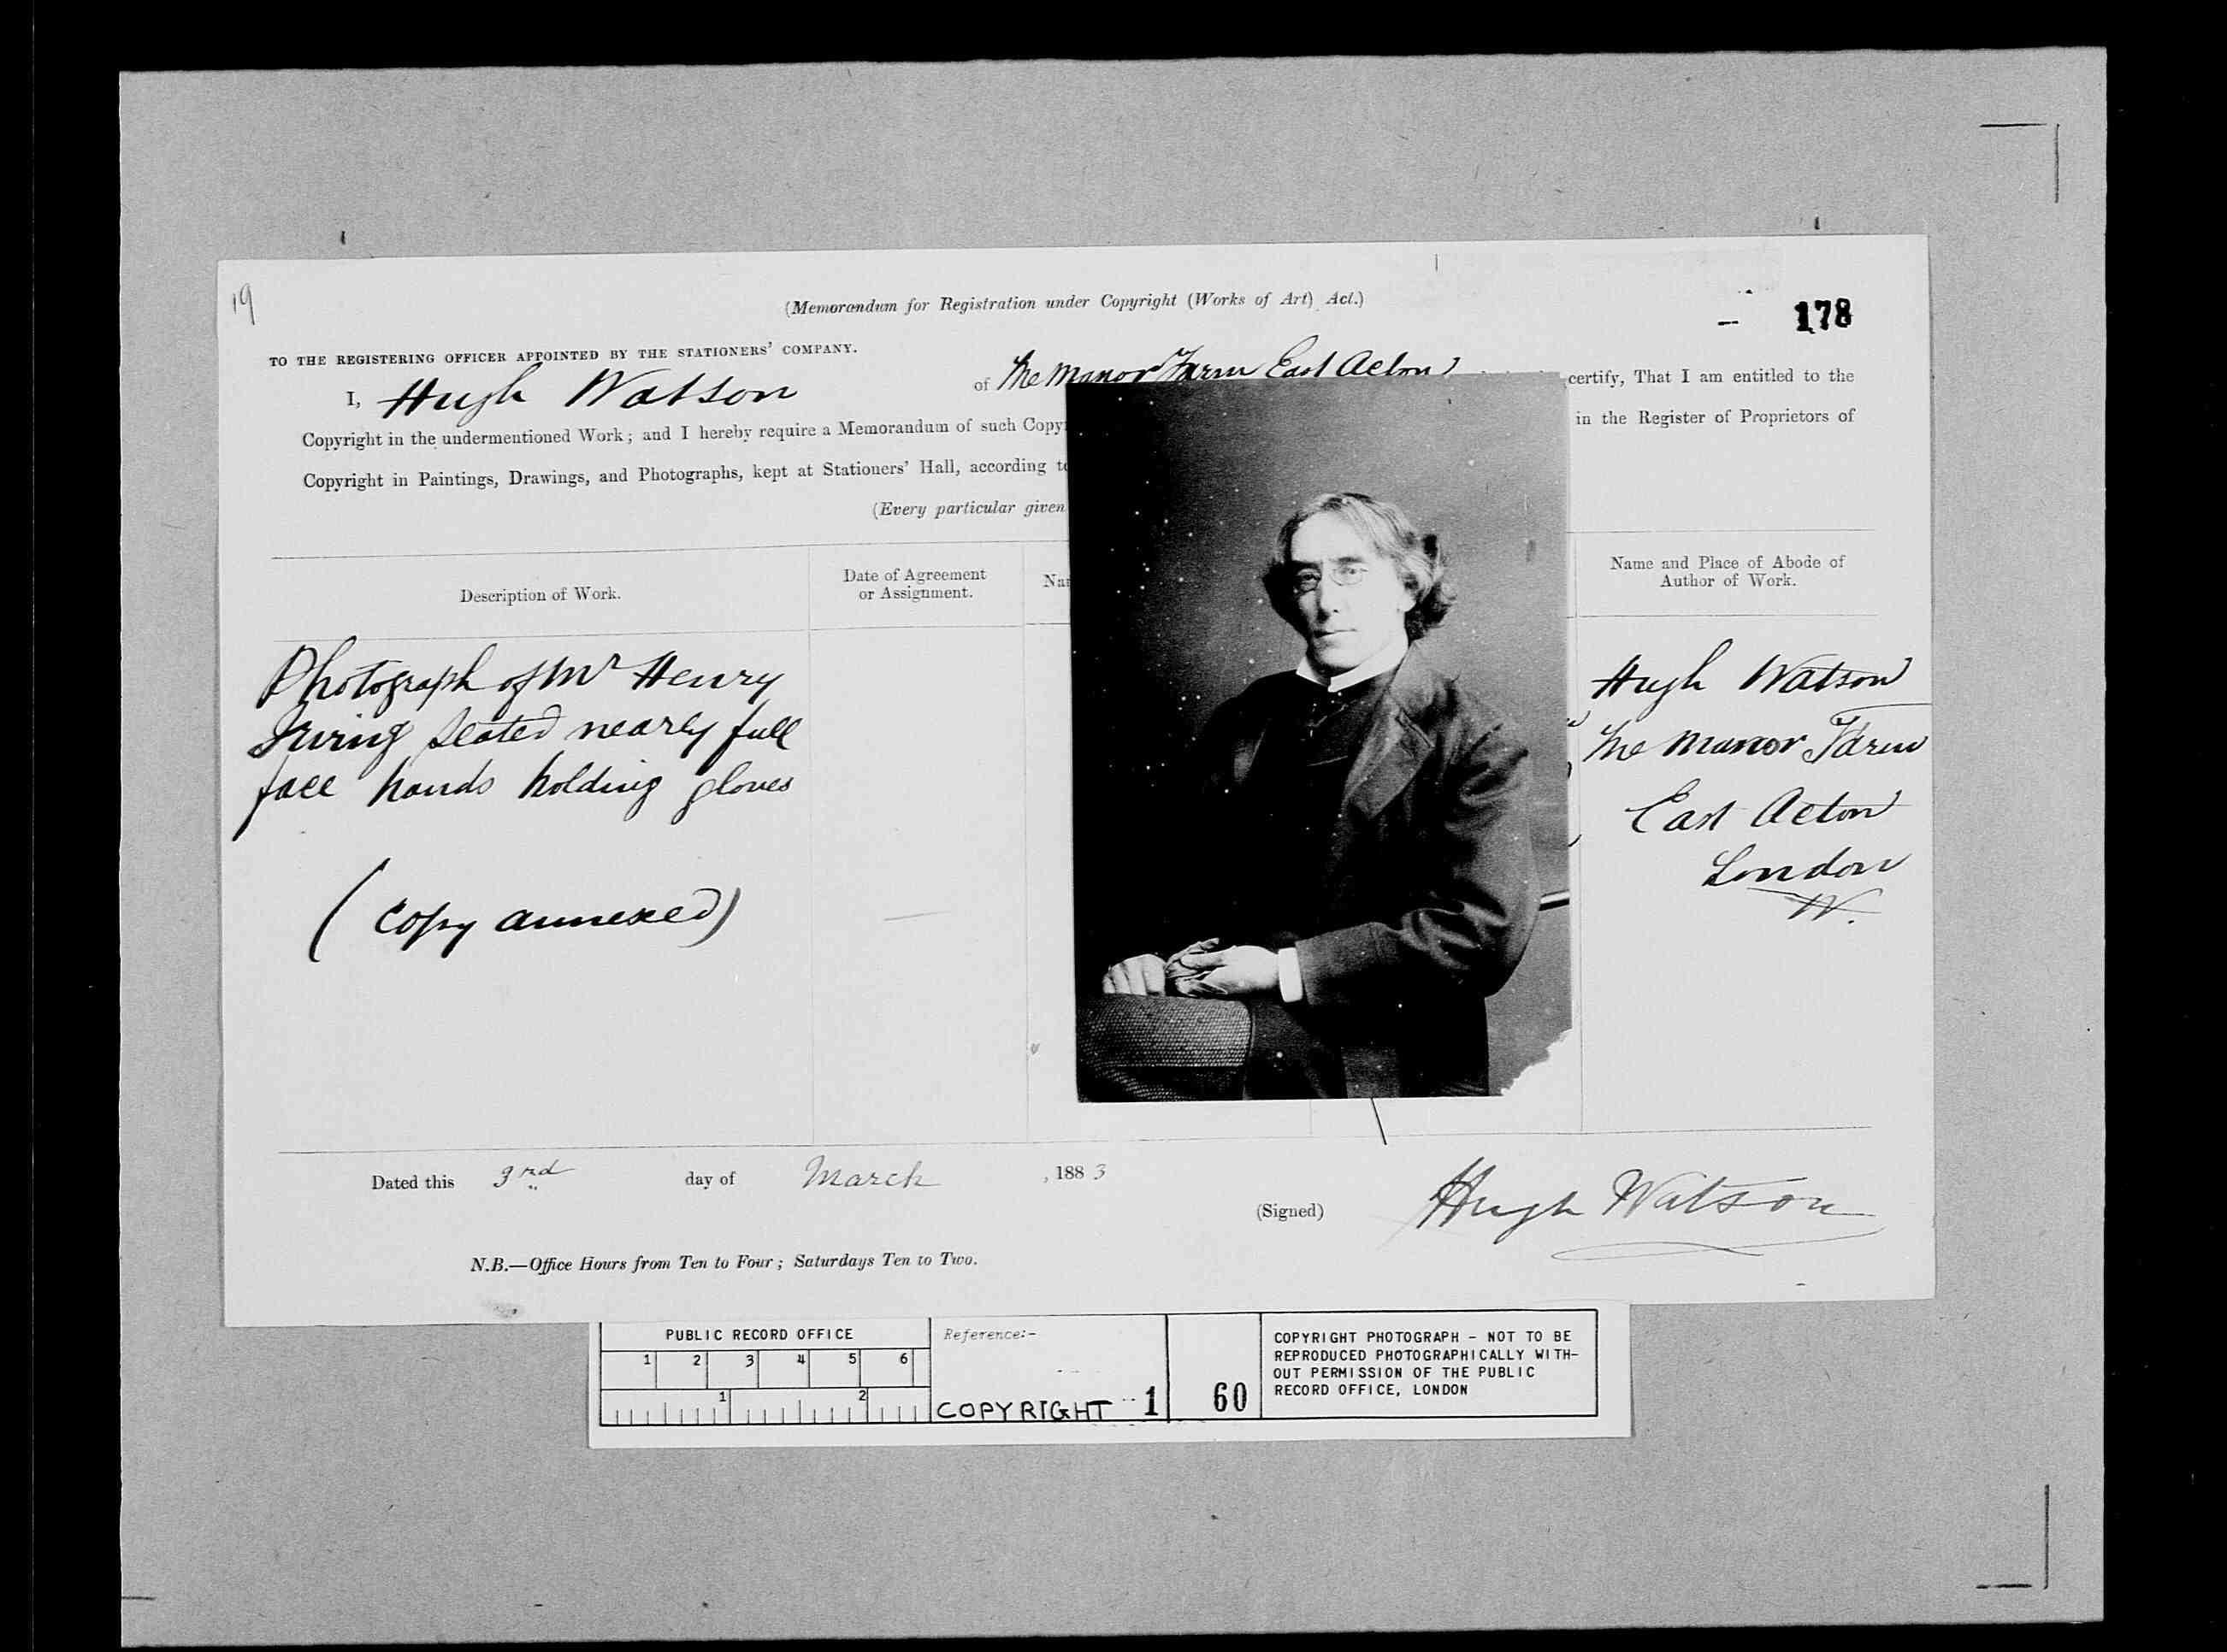 19
(Memorandum for Registration under Copyright (Works of Art) Act.)
178
TO THE REGISTERING OFFICER APPOINTED BY THE STATIONERS' COMPANY.
I, Hugh Watson of The Manor Farm East Acton certify, That I am entitled to the
Copyright in the undermentioned Work; and I hereby require a Memorandum of such Copy in the Register of Proprietors of
Copyright in Paintings, Drawings, and Photographs, kept at Stationers' Hall, according to
(Every particular given
Description of Work.
Date of Agreement
or Assignment.
Na
Name and Place of Abode of
Author of Work.
Photograph of Mr Henry
Irving seated nearly full
face hands holding gloves
(Copy annexed)
Hugh Watson
The Manor Farm
East Acton
London
W.
Dated this 3rd day of March, 1883
(Signed) Hugh Watson
N.B.—Office Hours from Ten to Four; Saturdays Ten to Two.
PUBLIC RECORD OFFICE
1 2 3 4 5 6
1 2
Reference:-
COPYRIGHT 1 60
COPYRIGHT PHOTOGRAPH - NOT TO BE
REPRODUCED PHOTOGRAPHICALLY WITH-
OUT PERMISSION OF THE PUBLIC
RECORD OFFICE, LONDON